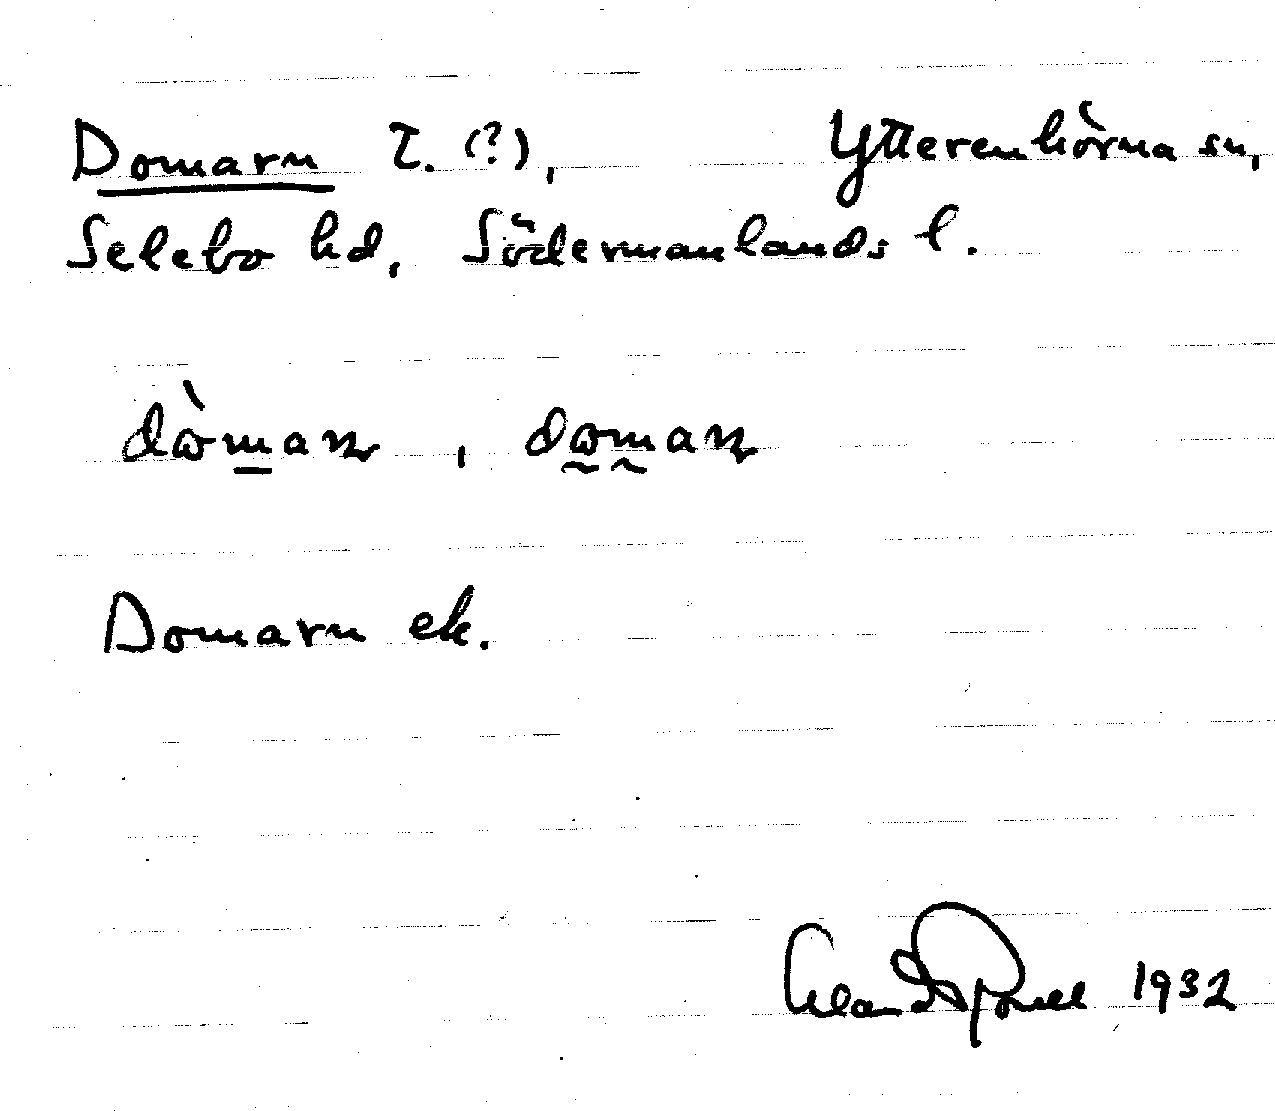 Domarn t. (?), Ytterenhörna sn,
Selebo hd, Södermanlands l.
dòmaṇ, domaṇ
Domarn ek.
1932